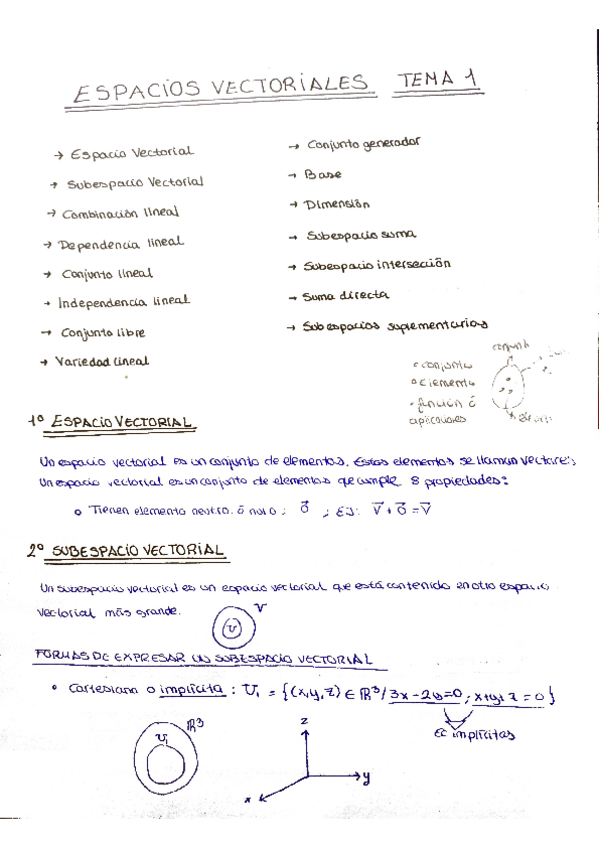 ESPACIOS VECTORIALES TEMA 1
→ Espacio Vectorial
→ Subespacio Vectorial
→ Combinación lineal
→ Dependencia lineal
→ Conjunto lineal
→ Independencia lineal
→ Conjunto libre
→ Variedad lineal
→ Conjunto generador
→ Base
→ Dimensión
→ Subespacio suma
→ Subespacio intersección
→ Suma directa
→ Subespacios suplementarios
conjunto
conjunto
elemento
función ó
aplicaciones
1º ESPACIO VECTORIAL
Un espacio vectorial es un conjunto de elementos. Estos elementos se llaman vectores,
Un espacio vectorial es un conjunto de elementos que cumple 8 propiedades:
o Tienen elemento neutro ó nulo ; 0⃗ ; EJ: V⃗ + 0⃗ = V⃗
2º SUBESPACIO VECTORIAL
Un subespacio vectorial es un espacio vectorial que está contenido en otro espacio
vectorial más grande.
V
FORMAS DE EXPRESAR UN SUBESPACIO VECTORIAL
• Cartesiana o implícita : U₁ = {(x,y,z) ∈ ℝ³/ 3x-2y=0 ; x+y+z=0}
Ec implícitas
ℝ³
U₁
z
y
x